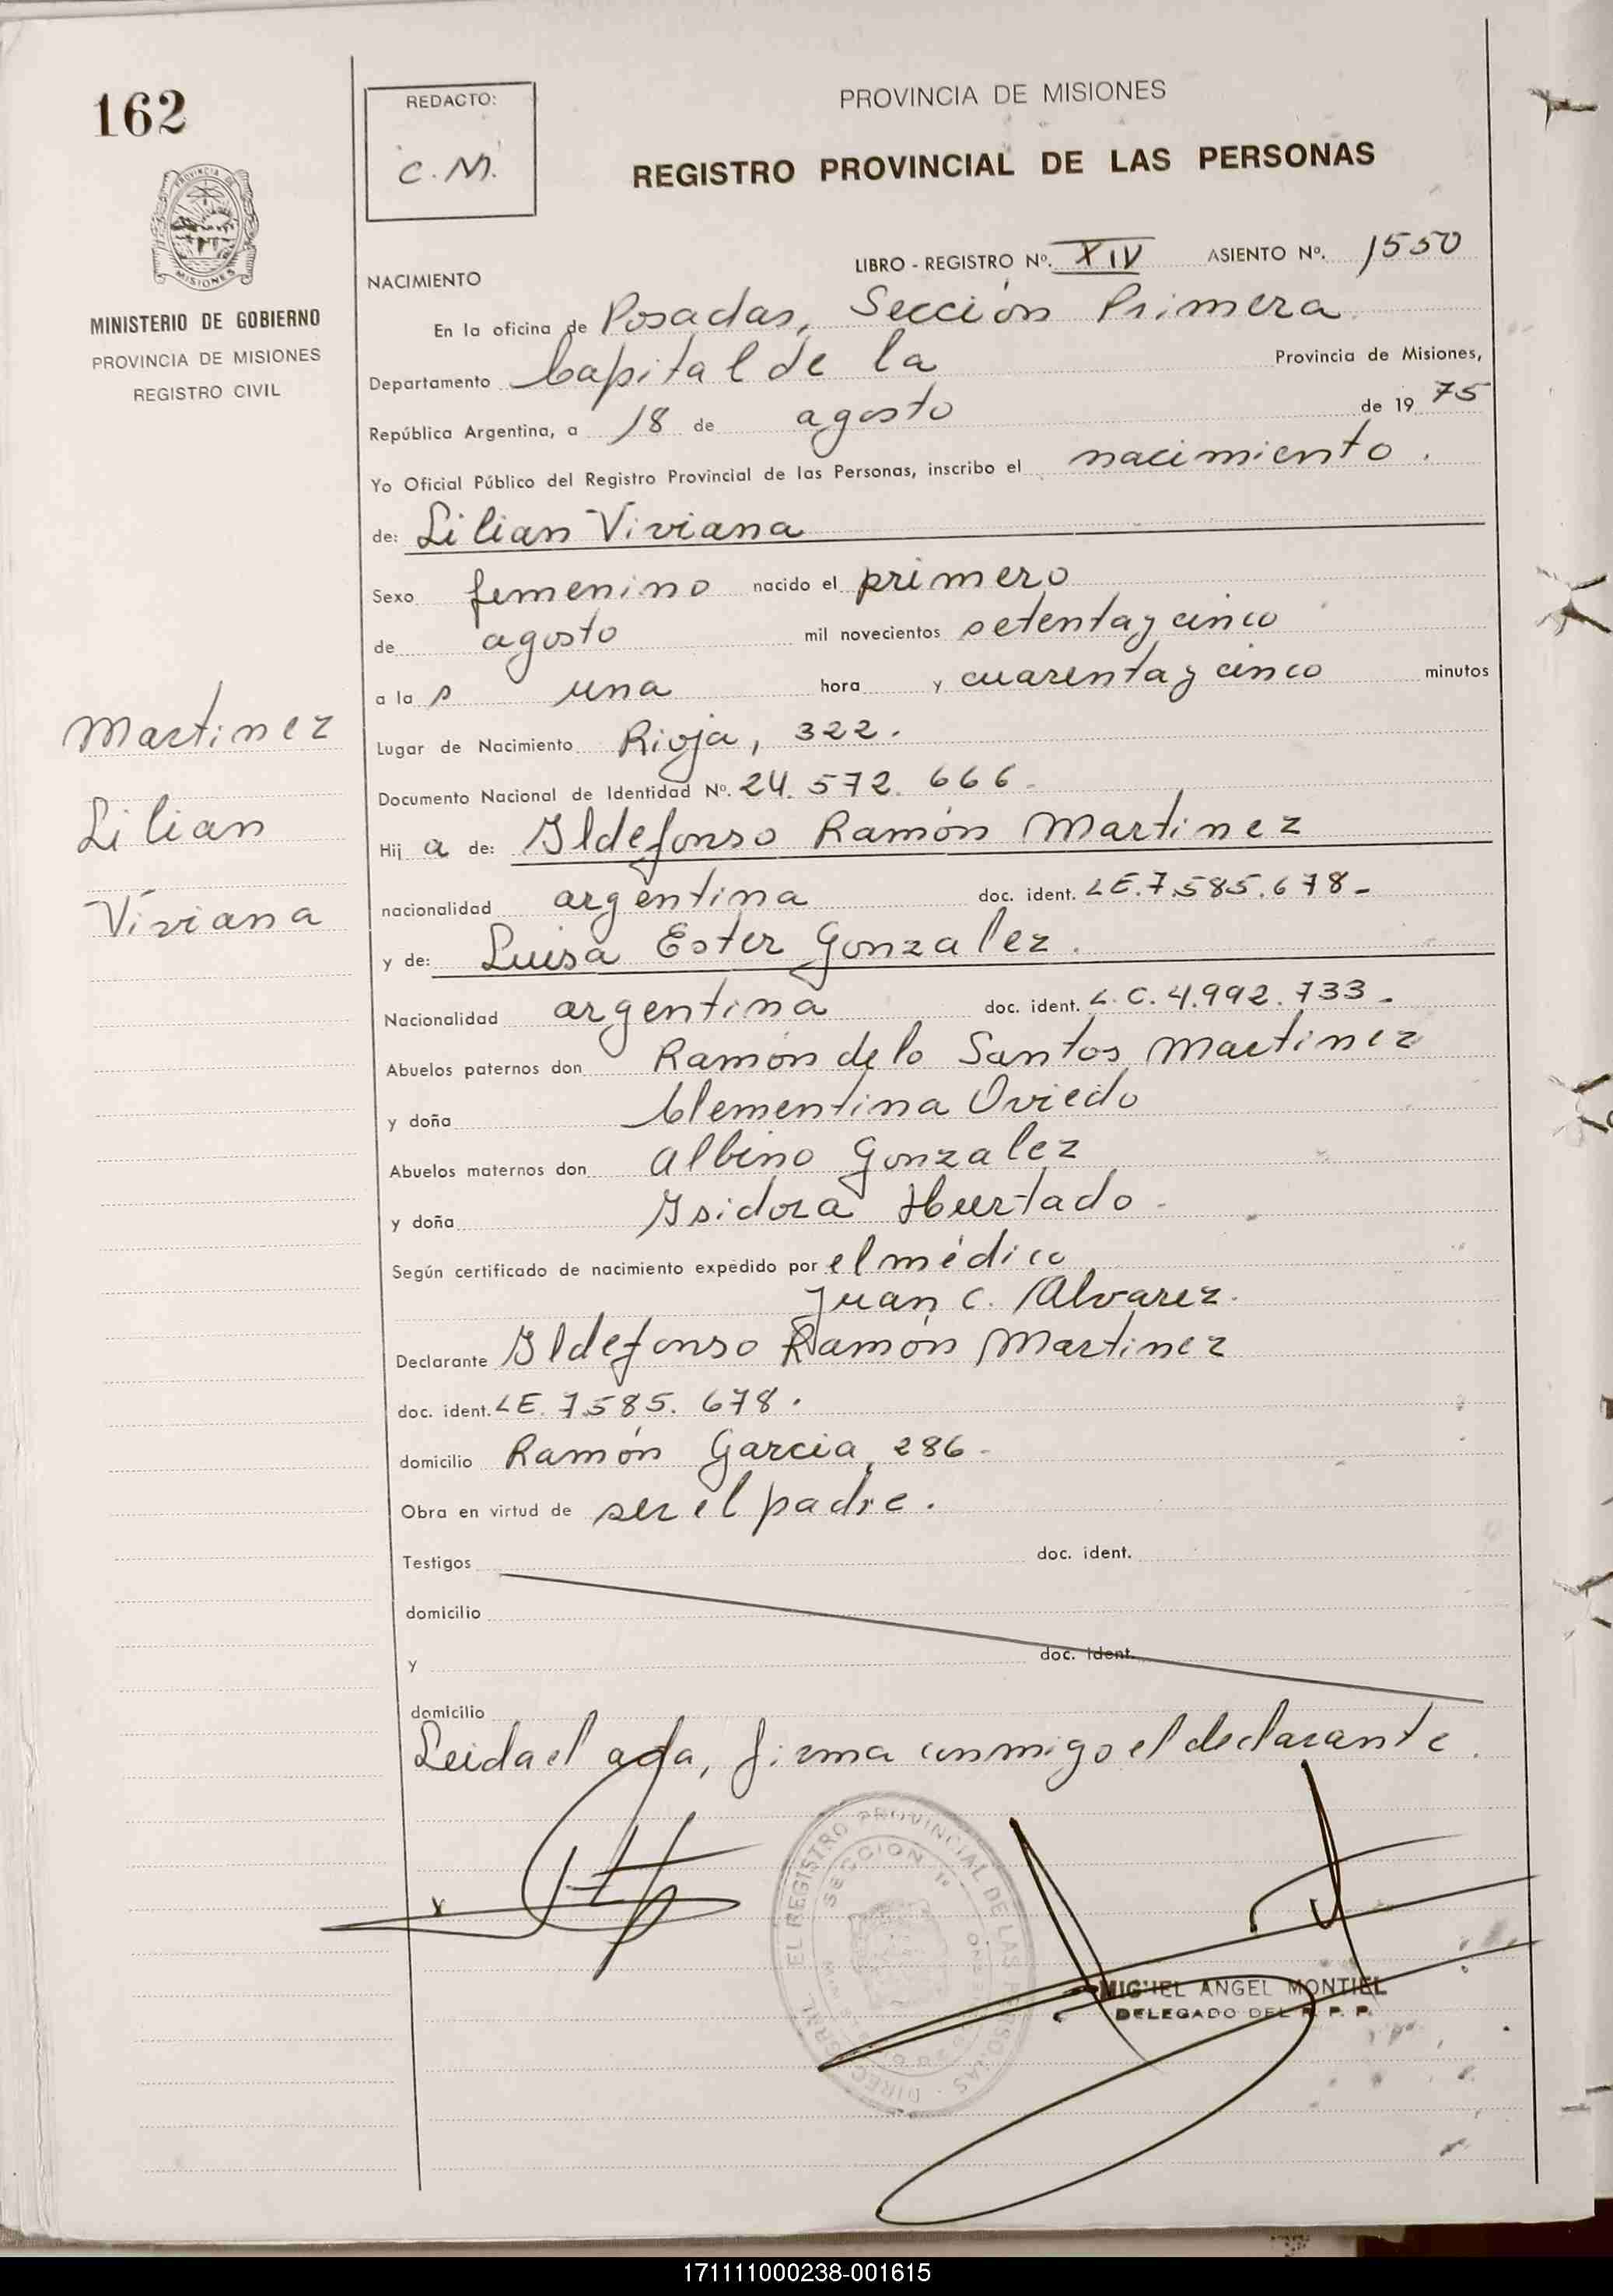 162
REDACTO:
C. M.
PROVINCIA DE MISIONES
REGISTRO PROVINCIAL DE LAS PERSONAS
MISIONES
MINISTERIO DE GOBIERNO
PROVINCIA DE MISIONES
REGISTRO CIVIL
LIBRO - REGISTRO Nº. XIV ASIENTO Nº. 1550
NACIMIENTO
En la oficina de Posadas, Sección Primera
Departamento Capital de la Provincia de Misiones,
República Argentina, a 18 de agosto de 19 75
Yo Oficial Público del Registro Provincial de las Personas, inscribo el nacimiento.
de: Lilian Viviana
Sexo femenino nacido el primero
de agosto mil novecientos setenta y cinco
a la s una hora y cuarenta y cinco minutos
Martinez
Lilian
Viviana
Lugar de Nacimiento Rioja, 322.
Documento Nacional de Identidad Nº. 24.572.666.
Hij a de: Ildefonso Ramón Martinez
nacionalidad argentina doc. ident. LE.7.585.678-
y de: Luisa Ester Gonzalez.
Nacionalidad argentina doc. ident. L.C. 4.992.733-
Abuelos paternos don Ramón de lo Santos Martinez
y doña Clementina Oviedo
Abuelos maternos don Albino Gonzalez
y doña Isidora Hurtado -
Según certificado de nacimiento expedido por el médico
Juan C. Alvarez.
Declarante Ildefonso Ramón Martinez
doc. ident. LE. 7.585.678.
domicilio Ramón Garcia, 286-
Obra en virtud de ser el padre.
Testigos doc. ident.
domicilio
y doc. ident.
domicilio
Leida el acta, firma conmigo el declarante.
EL REGISTRO PROVINCIAL DE LAS PERSONAS
SECCION 1ª
MIGUEL ANGEL MONTIEL
DELEGADO DEL R. P. P.
171111000238-001615